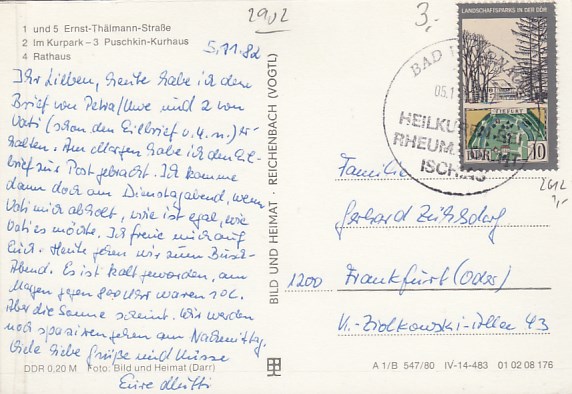 2902
3,-
1 und 5 Ernst-Thälmann-Straße
2 Im Kurpark – 3 Puschkin-Kurhaus
4 Rathaus
5.11.82
Ihr Lieben, heute habe ich den
Brief von Petra/Uwe und 2 von
Vati (schon den Eilbrief v. 4. n.) er-
halten. Am Morgen habe ich den Eil-
brief zur Post gebracht. Ich komme
dann doch am Dienstagabend, wenn
Vati mich abholt, wie ist egal, wie
Vati es möchte. Ich freue mich auf
Euch. Heute gehen wir zum
Abend. Es ist kalt geworden, am
Morgen gegen 800 Uhr waren 1°C.
Aber die Sonne scheint. Wir werden
noch spazieren gehen am Nachmittag.
Viele liebe Grüße und Küsse
Eure Mutti
DDR 0,20 M Foto: Bild und Heimat (Darr)
BILD UND HEIMAT · REICHENBACH (VOGTL)
LANDSCHAFTSPARKS IN DER DDR
DDR 10
BAD
05.1
HEILKU
RHEUMA
ISCHIAS
2412
1,-
Familie
Gerhard Zühlsdorf
1200 Frankfurt (Oder)
K.-Ziolkowski-Allee 43
A 1/B 547/80 IV-14-483 01 02 08 176